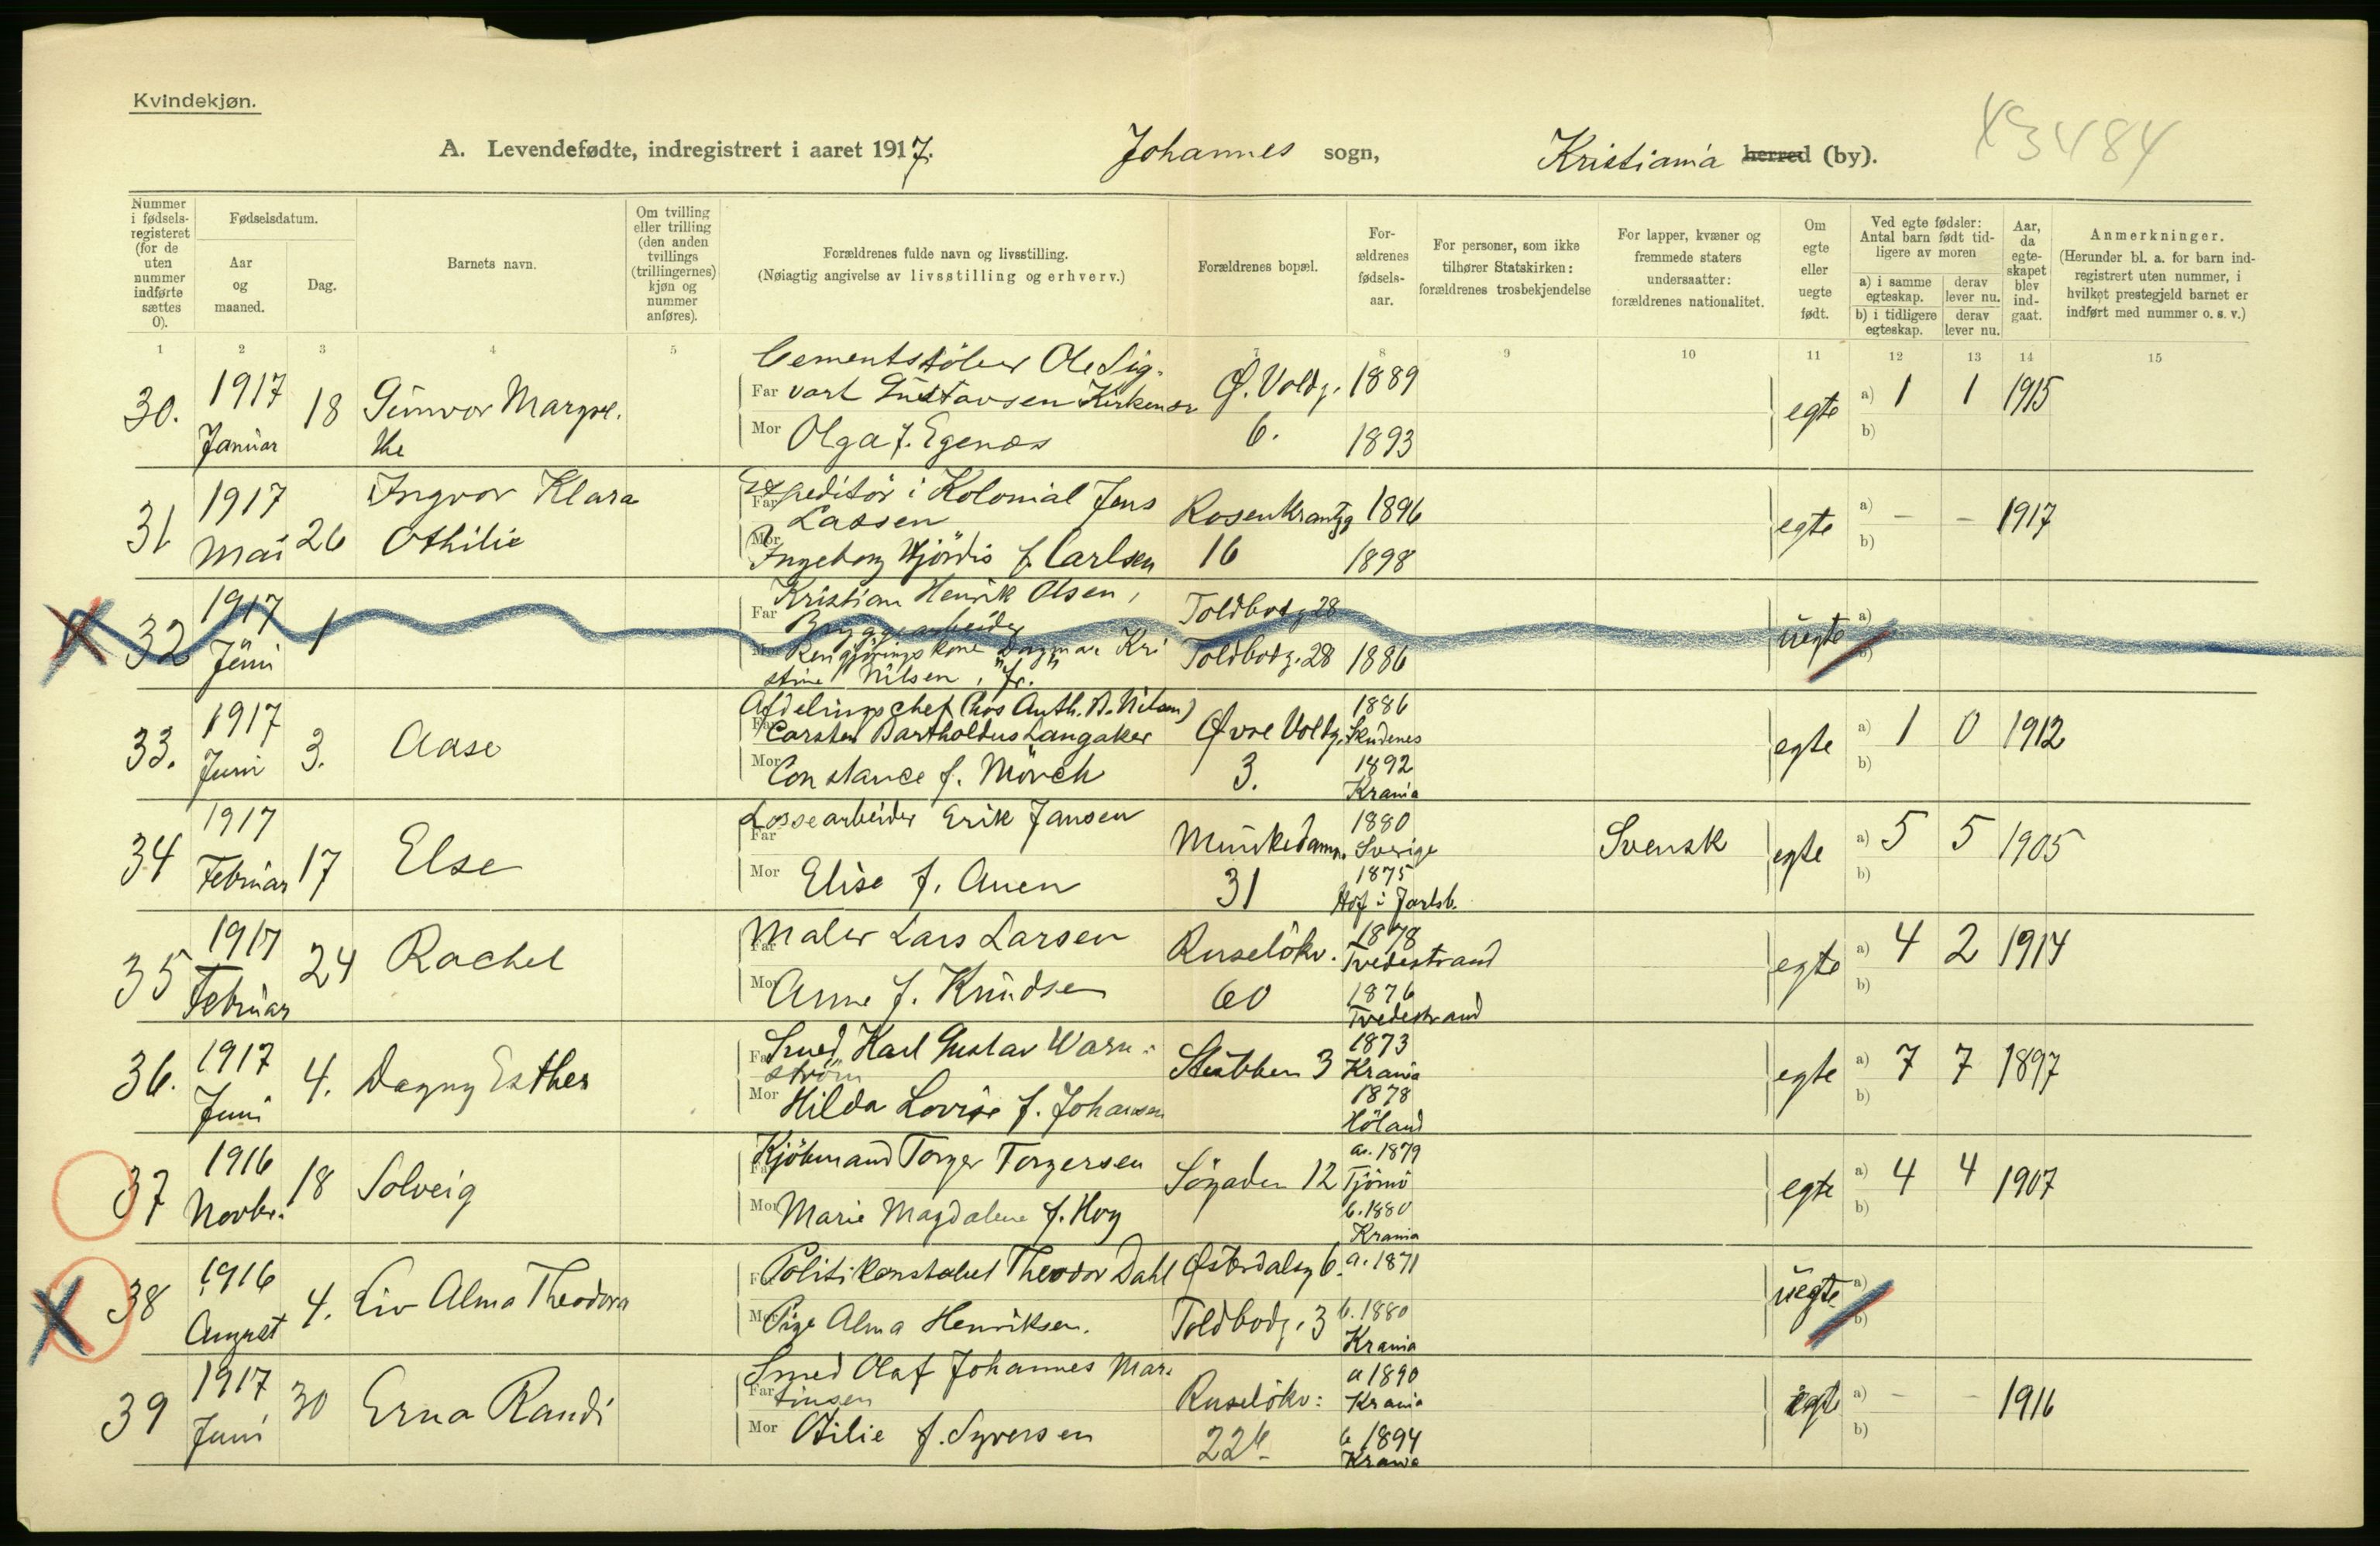 Kvindekjøn.
A. Levendefødte, indregistrert i aaret 1917. Johannes sogn, Kristiania herred (by).
Nummer i fødselsregisteret (for de uten nummer indførte sættes 0).
Fødselsdatum.
Aar og maaned.
Dag.
Barnets navn.
Om tvilling eller trilling (den anden tvillings (trillingernes) kjøn og nummer anføres).
Forældrenes fulde navn og livsstilling.
(Nøiagtig angivelse av livsstilling og erhverv.)
Forældrenes bopæl.
Forældrenes fødselsaar.
For personer, som ikke tilhører Statskirken: forældrenes trosbekjendelse
For lapper, kvæner og fremmede staters undersaatter: forældrenes nationalitet.
Om egte eller uegte født.
Ved egte fødsler: Antal barn født tidligere av moren
a) i samme egteskap. derav lever nu.
b) i tidligere egteskap. derav lever nu.
Aar, da egteskapet blev indgaat.
Anmerkninger.
(Herunder bl. a. for barn indregistrert uten nummer, i hvilket prestegjeld barnet er indført med nummer o. s. v.)
1 2 3 4 5 7 8 9 10 11 12 13 14 15
30. 1917 Januar 18 Gunvor Margrethe
Far Cementstöber Ole Sigvart Gustavsen Kirkemoe Ø. Voldg. 6. 1889
Mor Olga f. Egenæs 1893
egte a) 1 1 1915
b)
31 1917 Mai 26 Ingvor Klara Othilie
Far Expeditör i Kolonial Jens Lassen Rosenkrantzg 16 1896
Mor Ingeborg Hjördis f. Carlsen 1898
egte a) - - 1917
b)
32 1917 Juni 1
Far Kristian Henrik Olsen, Bryggearbeider Toldbodg 28
Rengjøringskone Dagmar Kristine Nilsen, fr. Toldbodg. 28 1886
uegte a)
b)
33. 1917 Juni 3. Aase
Far Afdelingschef (hos Anth. B. Nilsen) Carsten Bartholdus Langaker Øvre Voldg. 3. 1886 Skudenes
Mor Constance f. Mörch 1892 Krania
egte a) 1 0 1912
b)
34 1917 Februar 17 Else
Far Lossearbeider Erik Jansen Munkedamsv. 31 1880 Sverige
Mor Elise f. Auen 1875 Hof i Jarlsb.
Svensk egte a) 5 5 1905
b)
35 1917 Februar 24 Rachel
Far Maler Lars Larsen Ruselökv. 60 1878 Tvedestrand
Mor Anne f. Knudsen 1876 Tvedestrand
egte a) 4 2 1914
b)
36. 1917 Juni 4. Dagny Esther
Far Smed Karl Gustav Warnström Stubben 3 1873 Krania
Mor Hilda Lovise f. Johansen 1878 Höland
egte a) 7 7 1897
b)
37 1916 Novbr. 18 Solveig
Far Kjöbmand Torger Torgersen Sögaden 12 a. 1879 Tjömö
Mor Marie Magdalene f. Hoy b. 1880 Krania
egte a) 4 4 1907
b)
38 1916 August 4. Liv Alma Theodora
Far Politikonstabel Theodor Dahl Østerdalsg 6. a. 1871
Mor Pige Alma Henriksen. Toldbodg. 3 b. 1880 Krania
uegte a)
b)
39 1917 Juni 30 Erna Randi
Far Smed Olaf Johannes Martinsen Ruselökv: 22b a 1890 Krania
Mor Otilie f. Syversen b 1894 Krania
egte a) - - 1916
b)